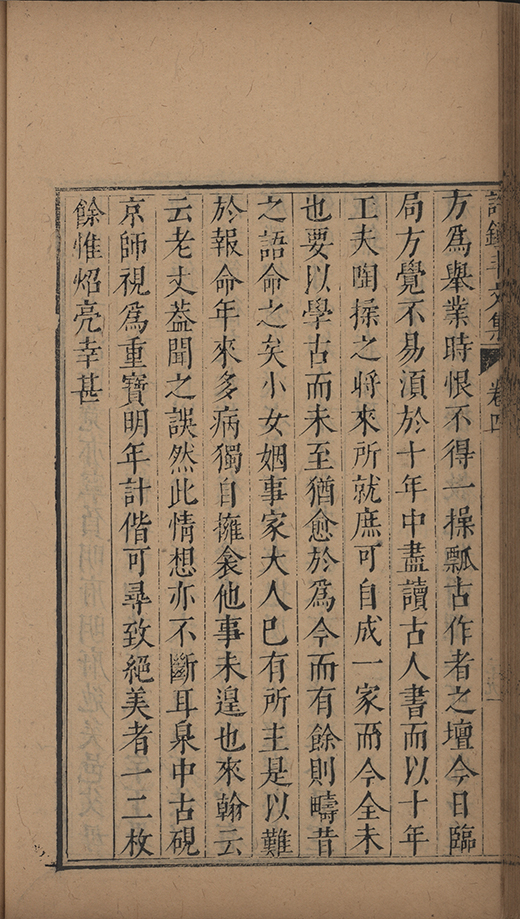 方爲舉業時恨不得一操瓢古作者之壇今日臨
局方覺不易須於十年中盡讀古人書而以十年
工夫陶操之將來所就庶可自成一家而今全未
也要以學古而未至猶愈於爲今而有餘則疇昔
之語命之矣小女姻事家大人已有所主是以難
於報命年來多病獨自擁衾他事未遑也來翰云
云老丈葢聞之誤然此情想亦不斷耳泉中古硯
京師視爲重寶明年計偕可尋致絕美者一二枚
餘惟炤亮幸甚
文集
卷四